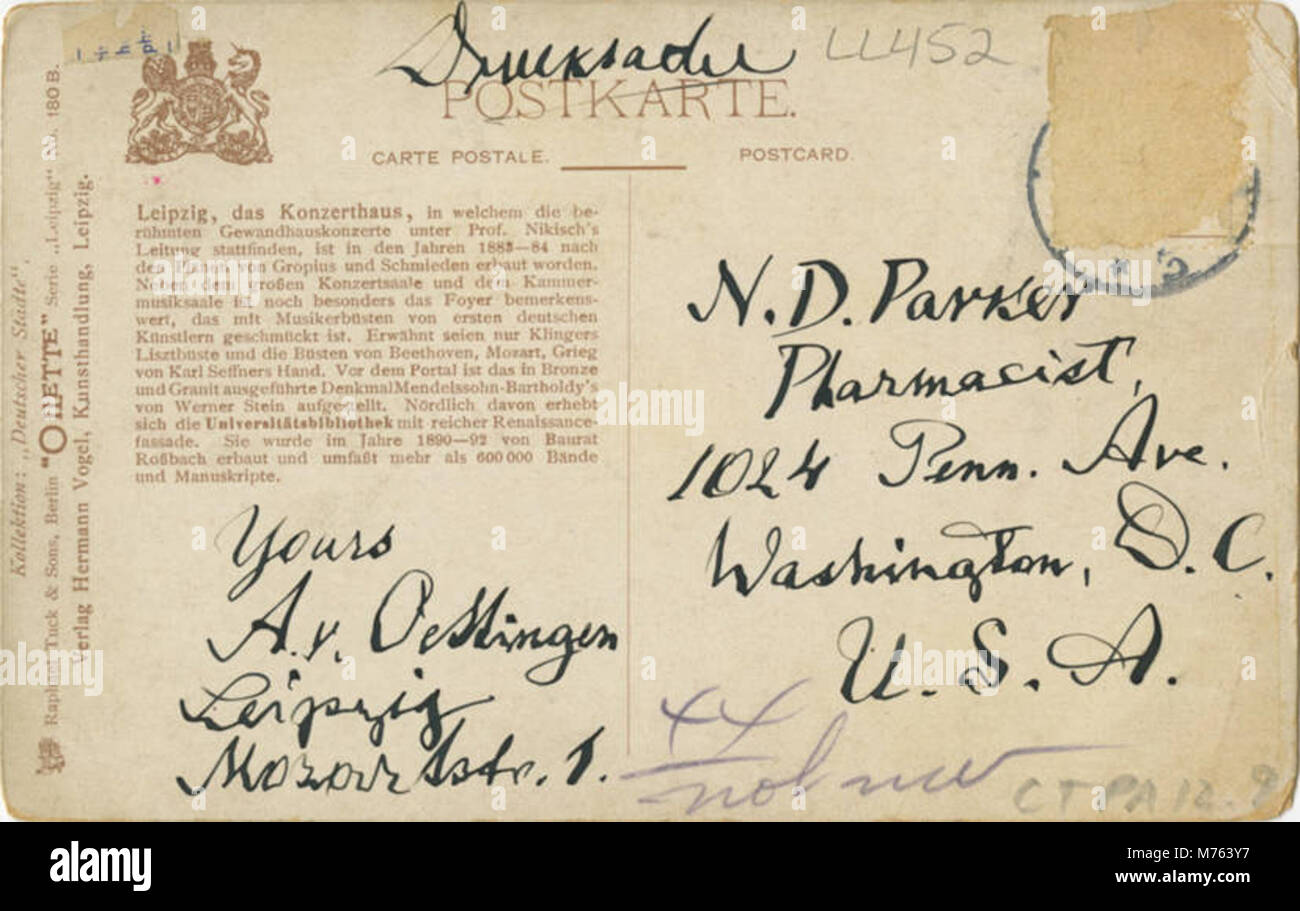 Drucksache
LL452
POSTKARTE.
CARTE POSTALE.
POSTCARD.
Leipzig, das Konzerthaus, in welchem die be-
rühmten Gewandhauskonzerte unter Prof. Nikisch's
Leitung stattfinden, ist in den Jahren 1883—84 nach
den Plänen von Gropius und Schmieden erbaut worden.
Neben dem großen Konzertsaale und dem Kammer-
musiksaale ist noch besonders das Foyer bemerkens-
wert, das mit Musikerbüsten von ersten deutschen
Künstlern geschmückt ist. Erwähnt seien nur Klingers
Lisztbüste und die Büsten von Beethoven, Mozart, Grieg
von Karl Seffners Hand. Vor dem Portal ist das in Bronze
und Granit ausgeführte Denkmal Mendelssohn-Bartholdy's
von Werner Stein aufgestellt. Nördlich davon erhebt
sich die Universitätsbibliothek mit reicher Renaissance-
fassade. Sie wurde im Jahre 1890—92 von Baurat
Roßbach erbaut und umfaßt mehr als 600 000 Bände
und Manuskripte.
Kollektion: „Deutscher Städte“.
Raphael Tuck & Sons, Berlin "OILETTE" Serie „Leipzig“ No. 180 B.
Verlag Hermann Vogel, Kunsthandlung, Leipzig.
Yours
A. v. Oettingen
Leipzig
Mozartstr. 1.
N. D. Parker
Pharmacist,
1024 Penn. Ave.
Washington, D. C.
U. S. A.
CTPA12.9
alamy
alamy
Image ID: M763Y7
www.alamy.com